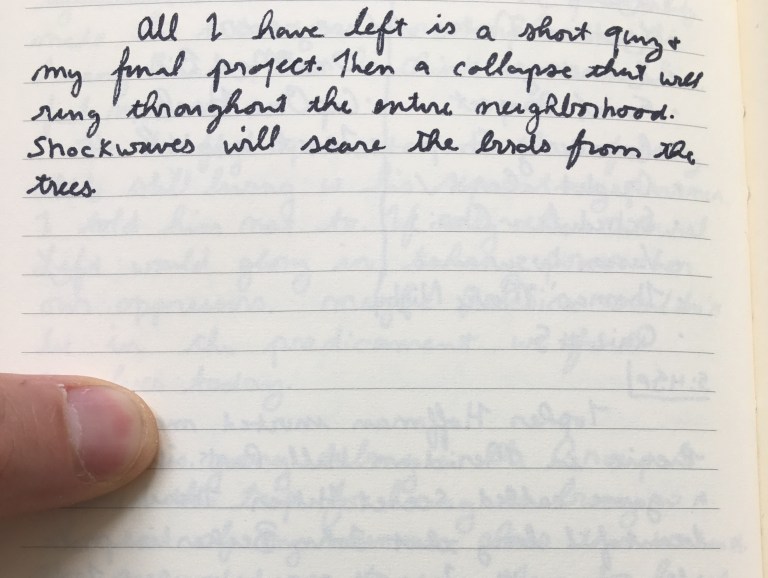 All I have left is a short quiz +
my final project. Then a collapse that will
ring throughout the entire neighborhood.
Shockwaves will scare the birds from the
trees.